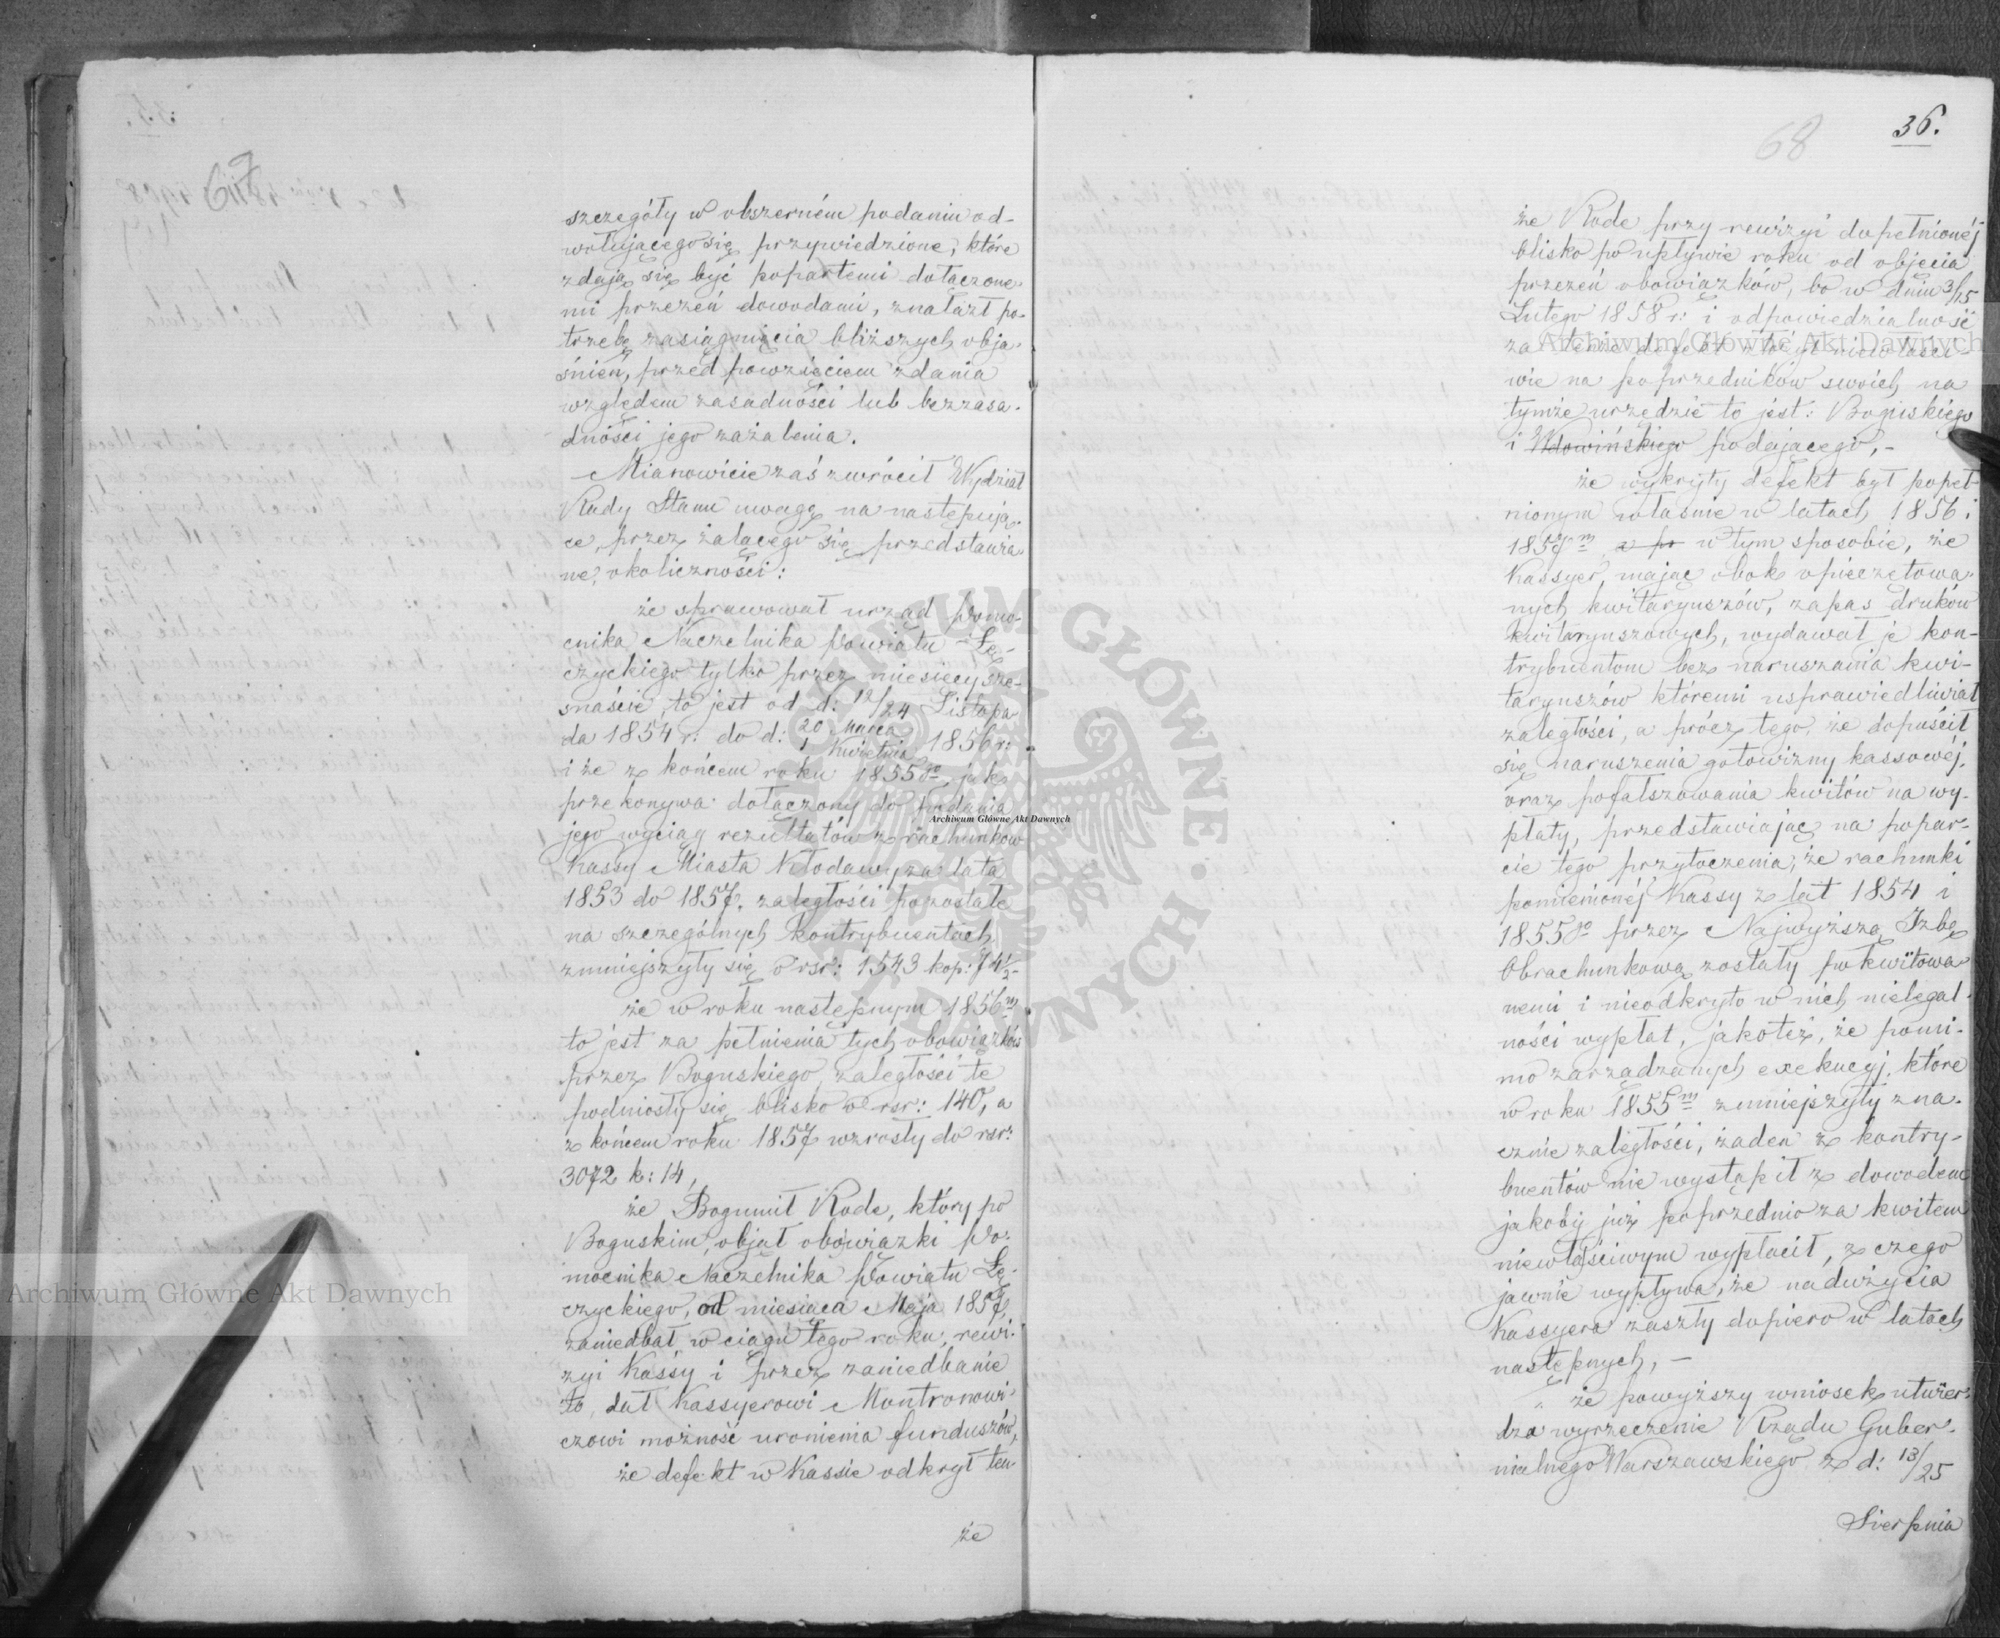 67
szczegóły w obszerném podaniu od-
wołującego się przywiedzione, które
zdają się być popartemi dołączone-
mi przezeń dowodami, znalazł po-
trzebę zasiągnięcia bliższych obja-
śnień, przed powzięciem zdania
względem zasadności lub bezzasa-
dności jego zażalenia.
Mianowicie zaś zwrócił Wydział
Rady Stanu uwagę na następują-
ce, przez żalącego się przedstawia-
ne, okoliczności:
że sprawował urząd Pomo-
cnika Naczelnika Powiatu Łę-
czyckiego tylko przez miesięcy sze-
snaście, to jest od d: 12/24 Listopa-
da 1854 r: do d: 20 Marca/1 Kwietnia 1856 r:
i że z końcem roku 1855go, jak
przekonywa dołączony do podania
jego wyciąg rezultatów z rachunków
Kassy Miasta Kłodawy za lata
1853 do 1857. zaległości pozostałe
na szczególnych kontrybuentach
zmniejszyły się o rsr: 1543 kop: 74½-
że w roku następnym 1856m
to jest za pełnienia tych obowiązków
przez Boguskiego, zaległości te
podniosły się blisko o rsr: 140, a
z końcem roku 1857 wzrosły do rsr:
3072 k: 14,
że Bogumił Rode, który po
Boguskim, objął obowiązki Po-
mocnika Naczelnika Powiatu Łę-
czyckiego, od miesiąca Maja 1857,
zaniedbał w ciągu tego roku, rewi-
zyi Kassy i przez zaniedbanie
to, dał Kassyerowi Montronowi-
czowi możność uronienia funduszów,
że defekt w Kassie odkrył ten-
że
68
36.
że Rode przy rewizyi dopełnionéj
blisko po upływie roku od objęcia
przezeń obowiązków, bo w dniu 3/15
Lutego 1858 r: i odpowiedzialność
za tenże defekt złożył niewłaści-
wie na poprzedników swoich na
tymże urzędzie to jest: Boguskiego
i Wdowińskiego podającego, -
że wykryty defekt był popeł-
nionym właśnie w latach 1856 i
1857m a pr w tym sposobie, że
Kassyer, mając obok opieczętowa-
nych kwitaryuszów, zapas druków
kwitaryuszowych, wydawał je kon-
trybuentom bez naruszania kwi-
taryuszów któremi usprawiedliwiał
zaległości, a prócz tego, że dopuścił
się naruszenia gotowizny kassowéj,
oraz pofałszowania kwitów na wy-
płaty, przedstawiając na popar-
cie tego przytoczenia, że rachunki
pomienionéj Kassy z lat 1854 i
1855go przez Najwyższą Izbę
Obrachunkową zostały pokwitowa-
nemi i nieodkryto w nich nielegal-
ności wypłat, jakoteż, że pomi-
mo zarządzanych exekucyj, które
w roku 1855m zmniejszyły zna-
cznie zaległości, żaden z kontry-
buentów nie wystąpił z dowodem
jakoby już poprzednio za kwitem
niewłaściwym wypłacił, z czego
jawnie wypływa, że nadużycia
Kassyera zaszły dopiero w latach
następnych, -
że powyższy wniosek utwier-
dza wyrzeczenie Rządu Guber-
nialnego Warszawskiego z d: 13/25
Sierpnia
Archiwum Główne Akt Dawnych
Archiwum Główne Akt Dawnych
Archiwum Główne Akt Dawnych
ARCHIWUM GŁÓWNE · AKT DAWNYCH ·